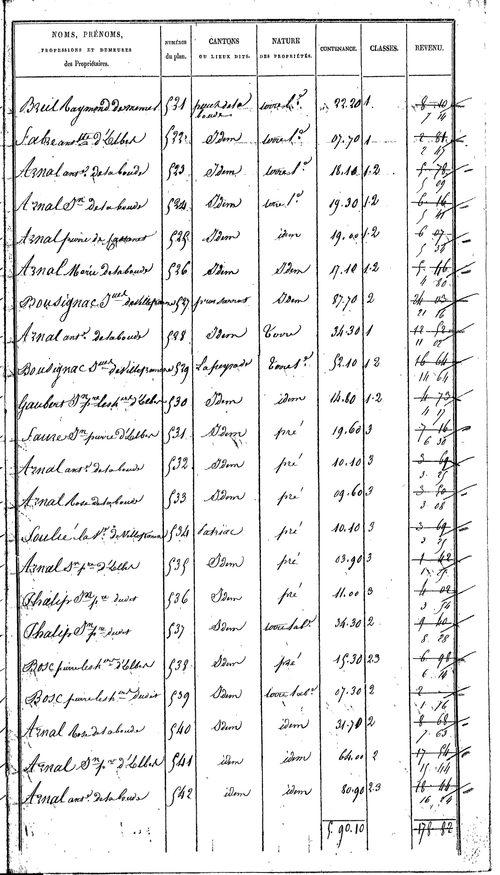 NOMS, PRÉNOMS, PROFESSIONS ET DEMEURES des Propriétaires. NUMÉROS du plan. CANTONS OU LIEUX DITS. NATURE DES PROPRIÉTÉS. CONTENANCE. CLASSES. REVENU.
Breil Raymond 521 22.20 1 8 10
7 14
522 Idem 07.70 1 2 81
2 45
Arnal ant. delaboude 523 Idem 18.10 1.2 5 78
5 09
Arnal Jn delaboude 524 Idem 19.30 1.2 6 16
5 41
Arnal pierre de 525 Idem idem 19.00 1.2 6 07
5 34
Arnal Marie delaboude 526 Idem Idem 17.10 1.2 5 46
4 80
Bousignac 527 Idem 87.70 2 24 03
21 16
Arnal ant. delaboude 528 Idem Terre 34.30 1 12 52
11 02
Bousignac 529 Lapeyrade 52.10 1 2 16 64
14 64
Gaubert 530 Idem idem 14.80 1.2 4 73
4 17
Faure Jn pierre d'Elbes 531 Idem pré 19.60 3 7 16
6 30
Arnal ant. delaboude 532 Idem pré 10.10 3 3 69
3 25
Arnal Rose delaboude 533 Idem pré 09.60 3 3 50
3 08
Soulié la Ve. de Villefranche 534 Latriac pré 10.10 3 3 69
3 25
Arnal Jn pre d'Elbes 535 Idem pré 03.90 3 1 42
1 25
Phalip Jn pre dudit 536 Idem pré 11.00 3 4 02
3 54
Phalip Jn pre dudit 537 Idem terre lab. 34.30 2 9 40
8 28
Bosc pierre d'Elbes 538 Idem pré 15.30 2 3 6 98
6 14
Bosc pierre dudit 539 Idem terre lab. 07.30 2 2
1 76
Arnal Rose delaboude 540 Idem idem 31.70 2 8 68
7 65
Arnal Jn pre d'Elbes 541 idem idem 64.00 2 17 54
15 44
Arnal ant. delaboude 542 idem idem 80.90 2.3 18 44
16 24
5. 90.10 178 82